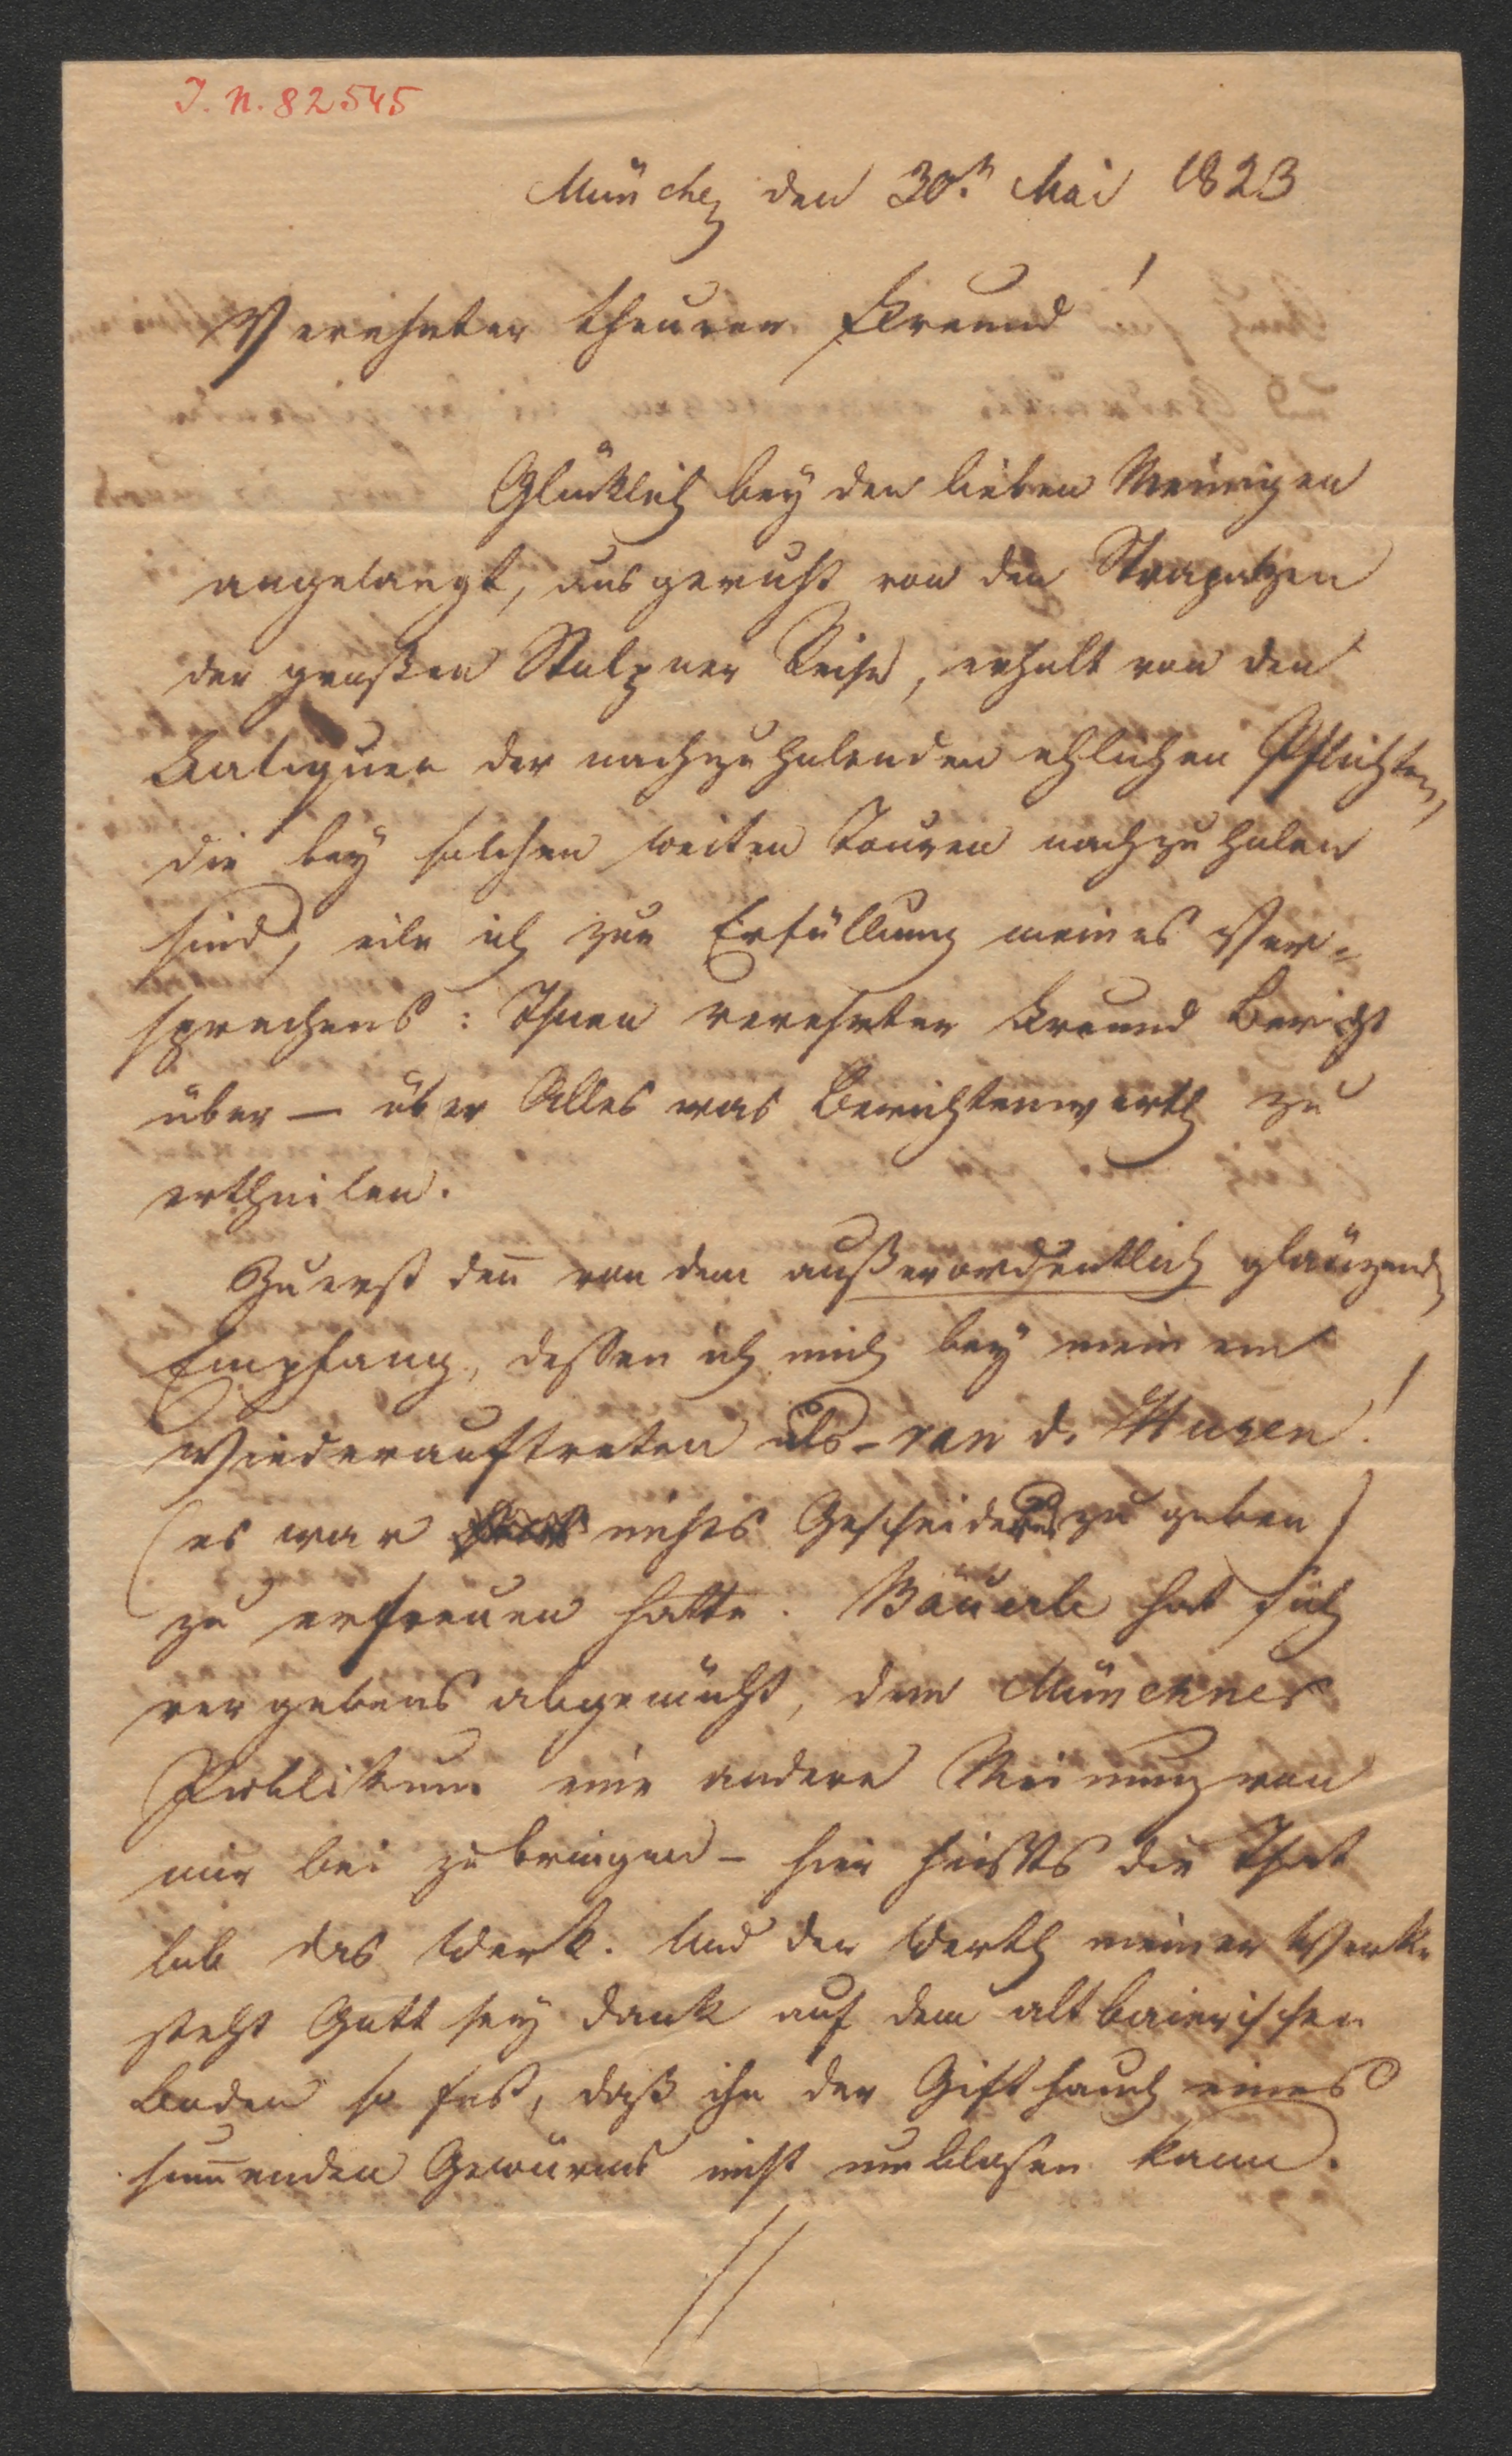 I. N. 82545
München den 30.n Mai 1823
Verehrter theurer Freund!
Glücklich bey den lieben Meinigen
angelangt, ausgeruht von den Strapatzen
der großen Reise, erholt von den
Fatiquen der nachzuholenden ehlichen Pflichten,
die bey solchen weiten Touren nachzuholen
sind, eile ich zur Erfüllung meines Ver=
sprechens: Ihnen verehrter Freund Bericht
über – über Alles was Berichtenswerth zu
ertheilen.
Zuerst den̅ von dem außerordentlich glänzenden
Empfang, dessen ich mich bey meinem
Wiederauftreten als – van d. Husen!
(es war nichts Gescheideres zu geben)
zu erfreuen hatte. Bäuerle hat sich
vergebens abgemüht, dem Münchner
Publikum eine andere Meinung von
mir bei zu bringen – hier heißts die That
lob das Werk. Und der Werth meiner Werke
steht Gott sey Dank auf dem altbaierischen
Boden so fest, daß ihn der Gifthauch eines
sum̅enden Gewürms nicht umblasen kann.
//